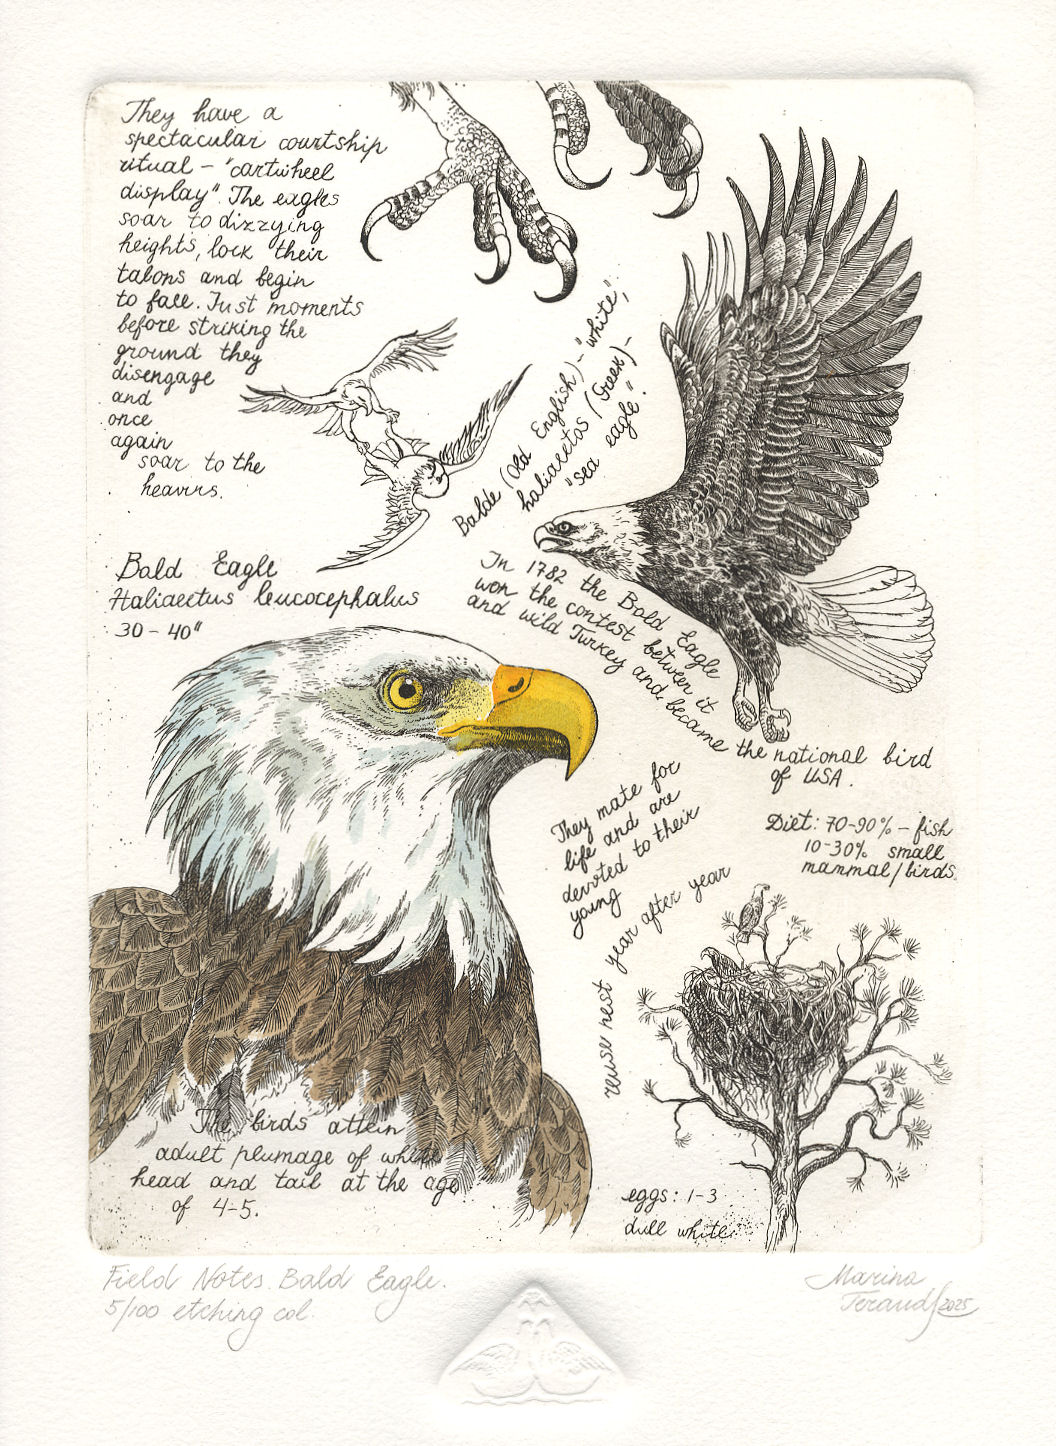 They have a
spectacular courtship
ritual – "cartwheel
display". The eagles
soar to dizzying
heights, lock their
talons and begin
to fall. Just moments
before striking the
ground they
disengage
and
once
again
soar to the
heavens.
Balde (Old English) – "white";
haliaeetos (Greek) –
"sea eagle".
Bald Eagle
Haliaeetus leucocephalus
30 – 40"
In 1782 the Bald Eagle
won the contest between it
and wild Turkey and became the national bird
of USA.
They mate for
life and are
devoted to their
young
Diet: 70-90% – fish
10-30% small
mammal/birds
reuse nest year after year
The birds attein
adult plumage of white
head and tail at the age
of 4-5.
eggs: 1-3
dull white
Field Notes. Bald Eagle.
5/100 etching col.
Marina
Terauds 2025